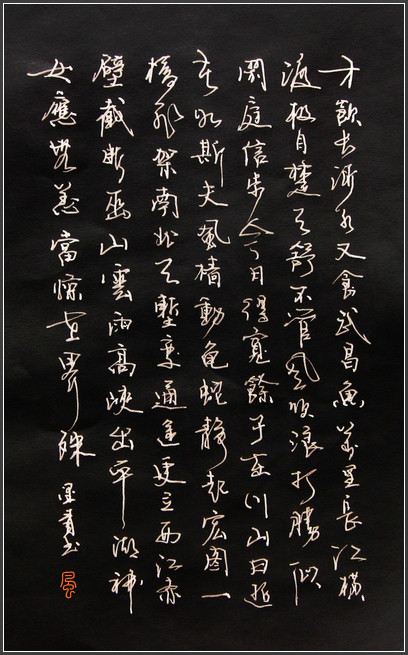 才飲長沙水又食武昌魚萬里長江橫
渡極目楚天舒不管風吹浪打勝似
閑庭信步今日得寬餘子在川山曰逝
者如斯夫風檣動龜蛇靜起宏图一
橋飛架南北天塹變通途更立西江赤
壁截斷巫山雲雨高峽出平湖神
女應無恙當惊世界殊